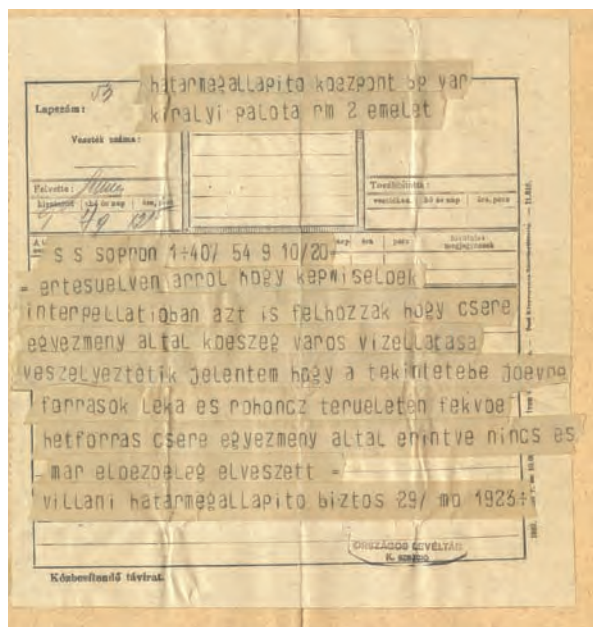 hatarmegallapito koezpont bp var
kiralyi palota rm 2 emelet
53
Lapszám:
Veszték száma:
Felvette:
Továbbította:
vezetéken hó és nap óra, perc
7/9
nap óra perc
s s sopron 1+40/ 54 9 10/20=
= ertesuelven arrol hogy kepwiseloek
interpellatioban azt is felhozzak hogy csere
egyezmeny altal koeszeg varos vizellatasa
veszelyeztetik jelentem hogy a tekintetebe joevoe
forrasok leka es rohoncz terueleten fekvoe
hetforras csere egyezmeny altal erintve nincs es
mar eloezoeleg elveszett =
villani hatarmegallapito biztos 29/ mo 1923+
ORSZÁGOS LEVÉLTÁR
K. szekció
Kézbesítendő távirat.